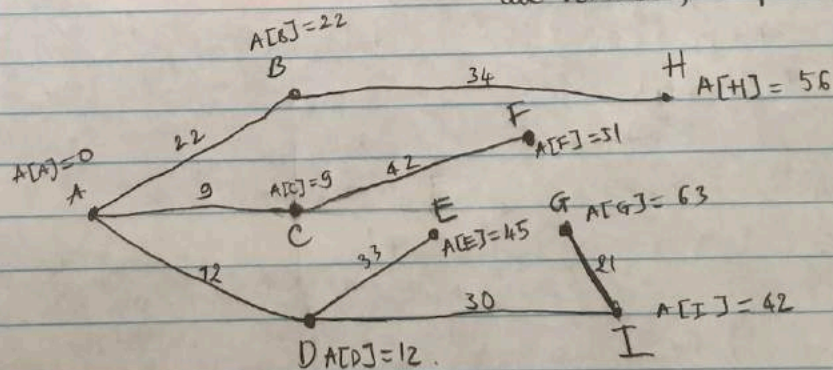 A[B]=22
B
34
H
A[H] = 56
22
F
A[F]=51
A[A]=0
A
9
A[C]=9
C
42
E
A[E]=45
G
A[G]=63
12
33
21
30
A[I]=42
I
D A[D]=12.